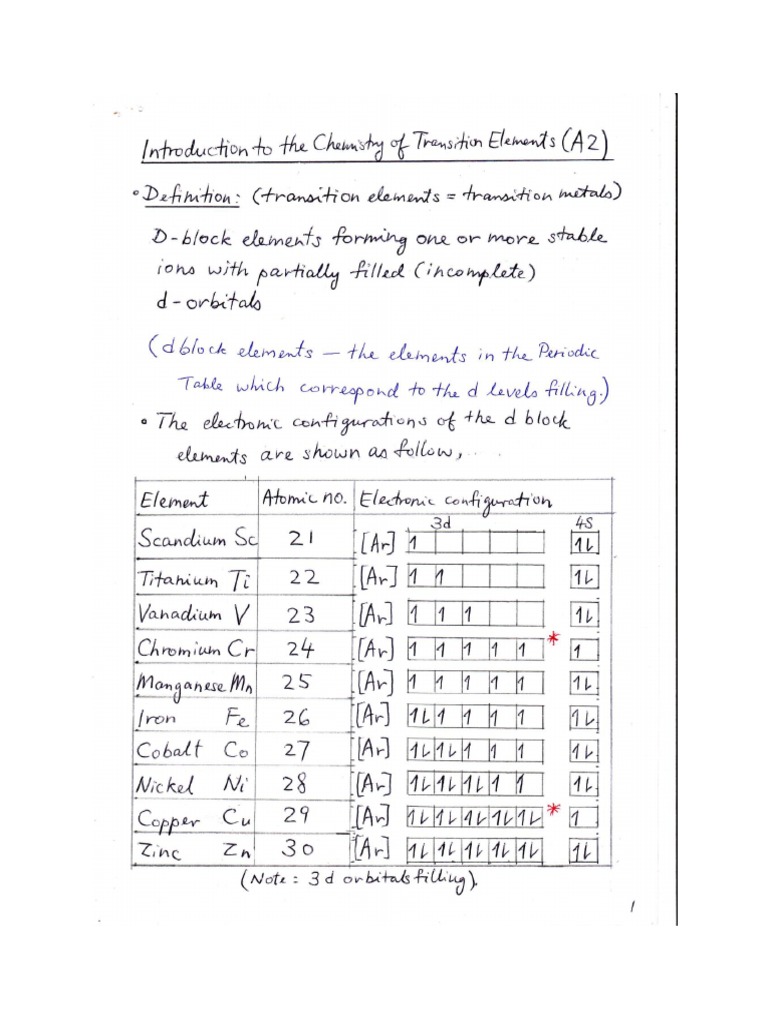 Introduction to the Chemistry of Transition Elements (A2)
• Definition: (transition elements = transition metals)
D-block elements forming one or more stable
ions with partially filled (incomplete)
d-orbitals
(d block elements — the elements in the Periodic
Table which correspond to the d levels filling.)
• The electronic configurations of the d block
elements are shown as follow, ....
Element Atomic no. Electronic configuration
3d 4S
Scandium Sc 21 [Ar] 1 1L
Titanium Ti 22 [Ar] 1 1 1L
Vanadium V 23 [Ar] 1 1 1 1L
Chromium Cr 24 [Ar] 1 1 1 1 1 * 1
Manganese Mn 25 [Ar] 1 1 1 1 1 1L
Iron Fe 26 [Ar] 1L 1 1 1 1 1L
Cobalt Co 27 [Ar] 1L 1L 1 1 1 1L
Nickel Ni 28 [Ar] 1L 1L 1L 1 1 1L
Copper Cu 29 [Ar] 1L 1L 1L 1L 1L * 1
Zinc Zn 30 [Ar] 1L 1L 1L 1L 1L 1L
(Note : 3d orbitals filling).
1